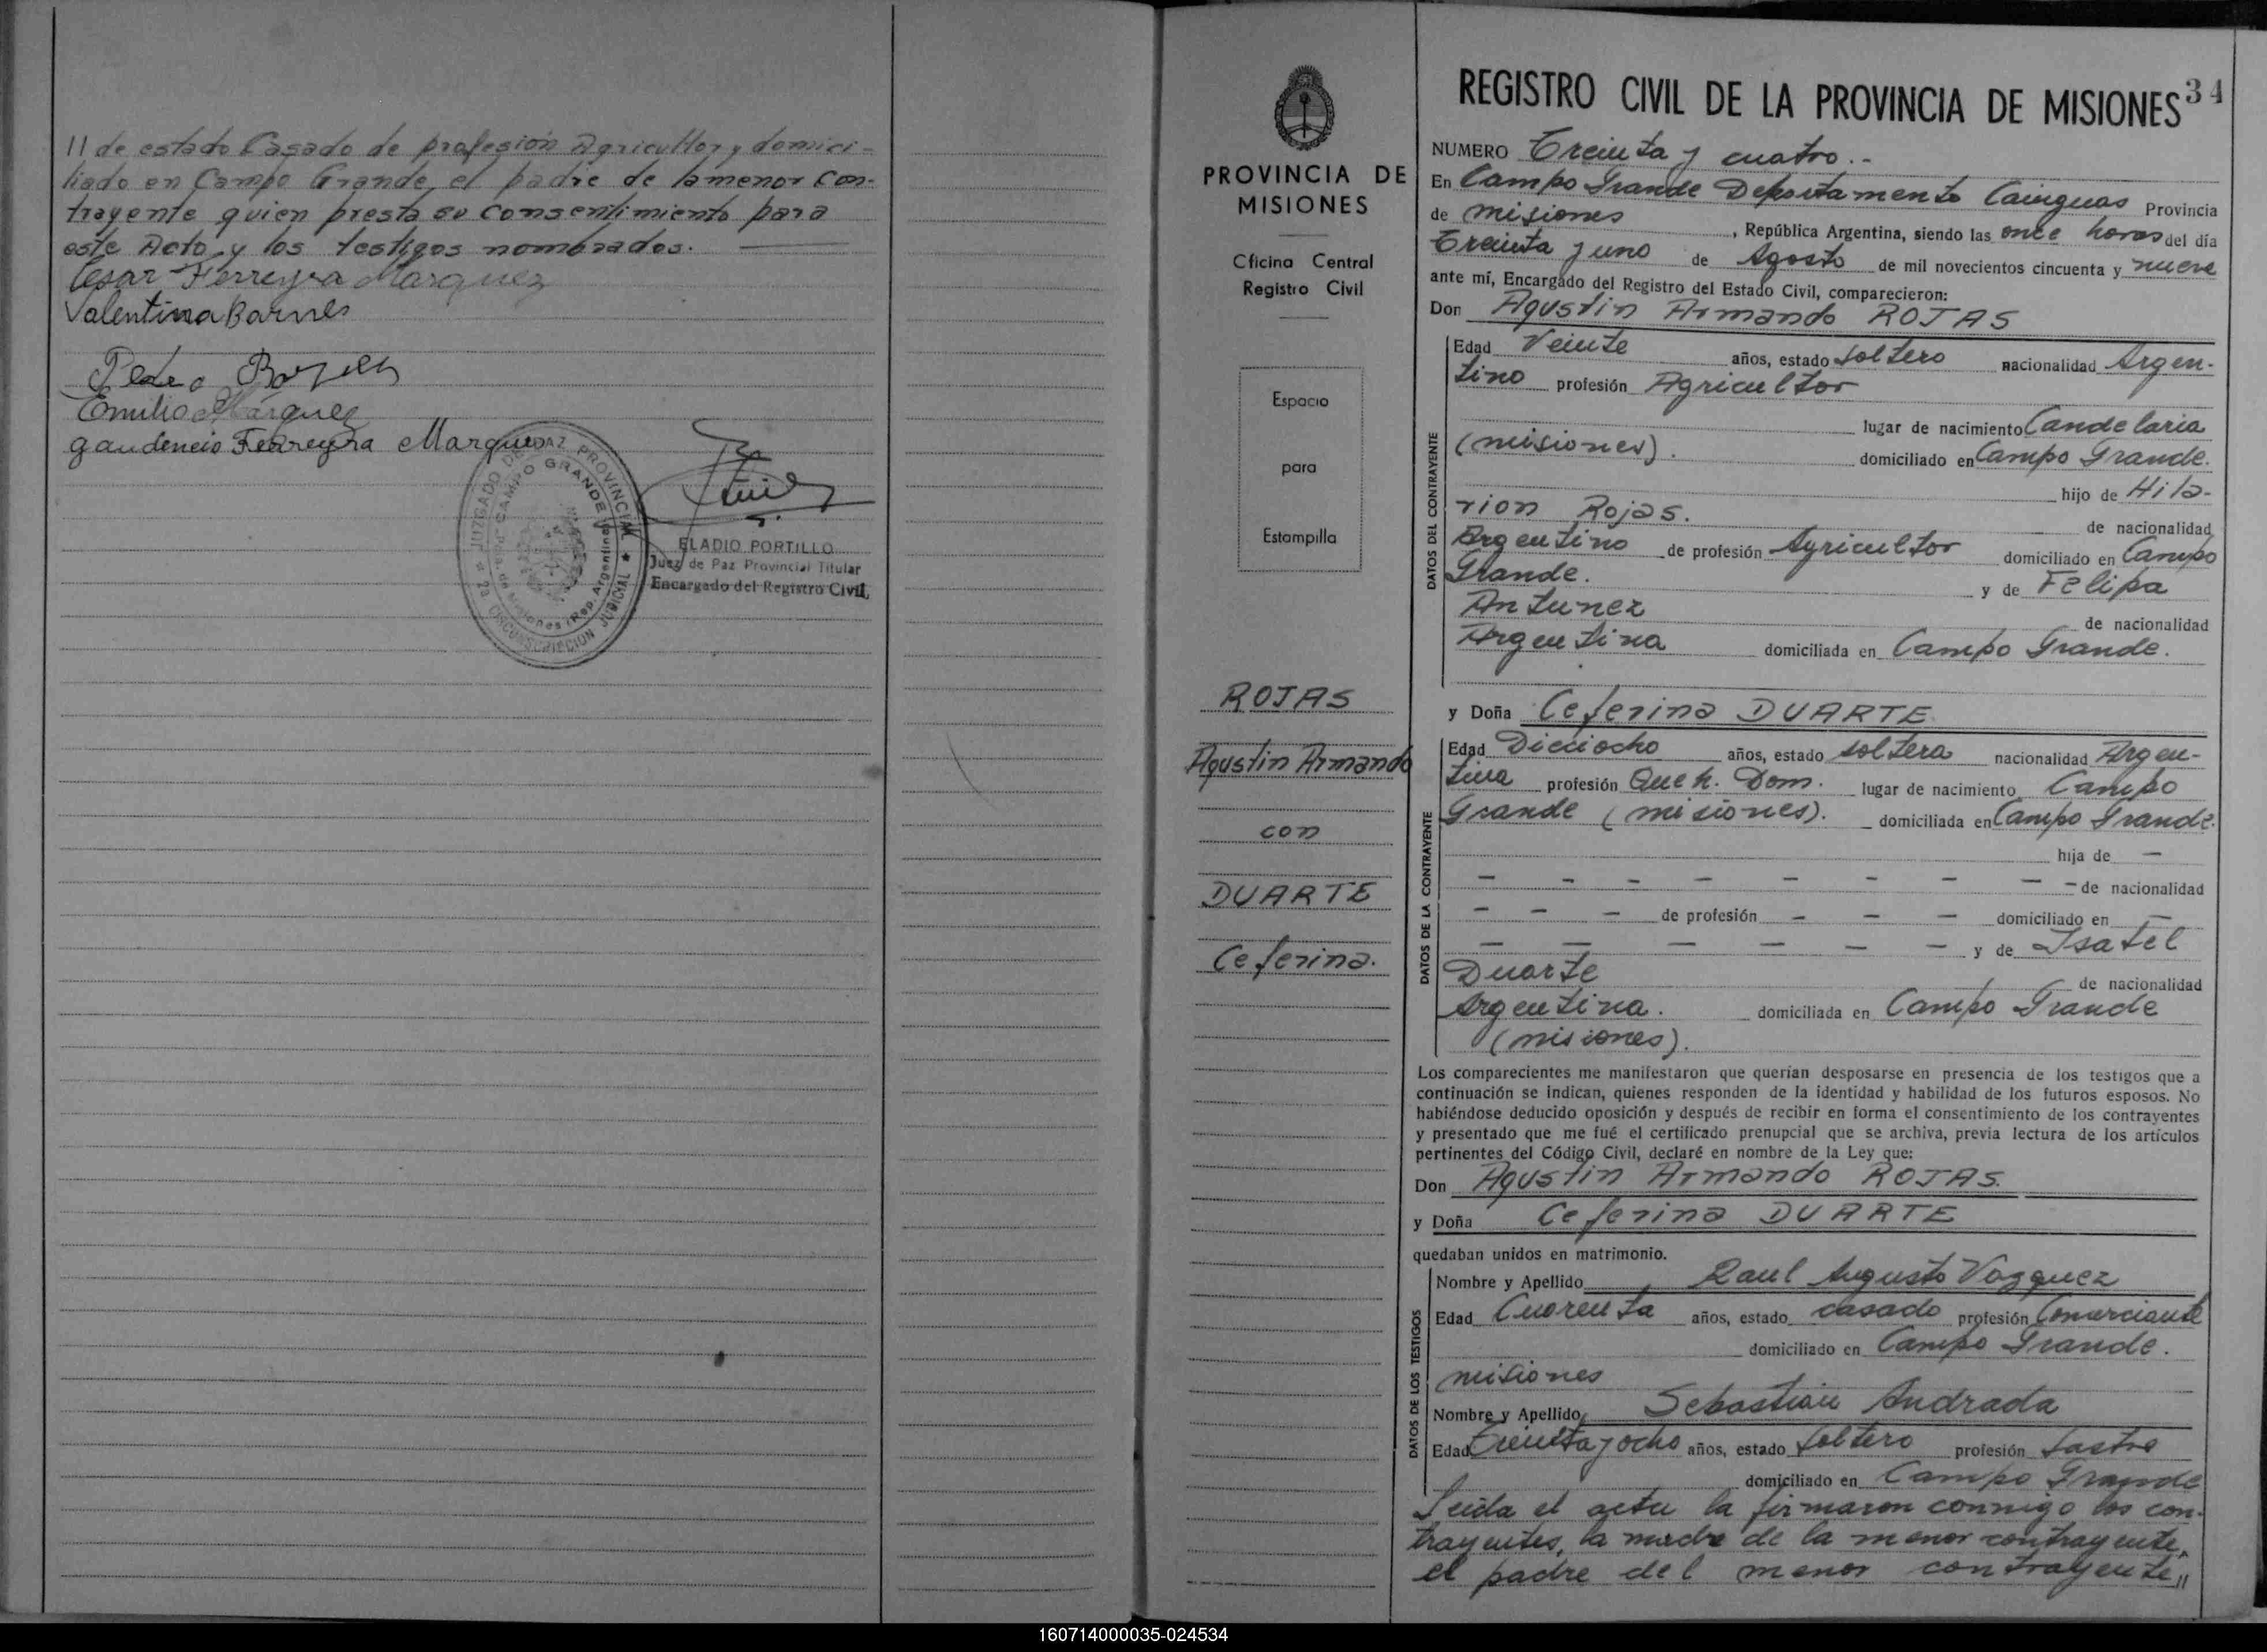 11 de estado Casado de profesión Agricultor y domici-
liado en Campo Grande, el padre de la menor con-
trayente quien presta su consentimiento para
este Acto y los testigos nombrados.
Cesar Ferreyra Marquez
Valentina Barnes
Pedro
Emilio Marquez
gaudencio Ferreyra Marquez
JUZGADO DE PAZ PROVINCIAL
CAMPO GRANDE
2a CIRCUNSCRIPCION JUDICIAL
Misiones (Rep. Argentina)
ELADIO PORTILLO
Juez de Paz Provincial Titular
Encargado del Registro Civil,
PROVINCIA DE
MISIONES
Oficina Central
Registro Civil
Espacio
para
Estampilla
ROJAS
Agustin Armando
con
DUARTE
Ceferina.
REGISTRO CIVIL DE LA PROVINCIA DE MISIONES 34
NUMERO Treinta y cuatro.-
En Campo Grande Departamento Cainguas Provincia
de misiones, República Argentina, siendo las once horas del día
treinta y uno de Agosto de mil novecientos cincuenta y nueve
ante mí, Encargado del Registro del Estado Civil, comparecieron:
Don Agustin Armando ROJAS
DATOS DEL CONTRAYENTE
Edad Veinte años, estado soltero nacionalidad Argen-
tino profesión Agricultor
lugar de nacimiento Candelaria
(misiones). domiciliado en Campo Grande.
hijo de Hila-
rion Rojas. de nacionalidad
Argentino de profesión Agricultor domiciliado en Campo
Grande. y de Felipa
Antunez de nacionalidad
Argentina domiciliada en Campo Grande.
y Doña Ceferina DUARTE
DATOS DE LA CONTRAYENTE
Edad Dieciocho años, estado soltera nacionalidad Argen-
tina profesión Queh. Dom. lugar de nacimiento Campo
Grande (misiones). domiciliada en Campo Grande.
hija de —
— — — — — — — — — de nacionalidad
— — — de profesión — — — domiciliado en —
— — — — — — y de Isabel
Duarte de nacionalidad
Argentina. domiciliada en Campo Grande
(misiones).
Los comparecientes me manifestaron que querían desposarse en presencia de los testigos que a
continuación se indican, quienes responden de la identidad y habilidad de los futuros esposos. No
habiéndose deducido oposición y después de recibir en forma el consentimiento de los contrayentes
y presentado que me fué el certificado prenupcial que se archiva, previa lectura de los artículos
pertinentes del Código Civil, declaré en nombre de la Ley que:
Don Agustin Armando ROJAS.
y Doña Ceferina DUARTE
quedaban unidos en matrimonio.
DATOS DE LOS TESTIGOS
Nombre y Apellido Raul Augusto Vazquez
Edad Cuarenta años, estado casado profesión Comerciante
domiciliado en Campo Grande.
misiones
Nombre y Apellido Sebastian Andrada
Edad Treinta y ocho años, estado soltero profesión Sastre
domiciliado en Campo Grande
Leida el acta la firmaron conmigo los con-
trayentes, la madre de la menor contrayente,
el padre del menor contrayente,,
160714000035-024534